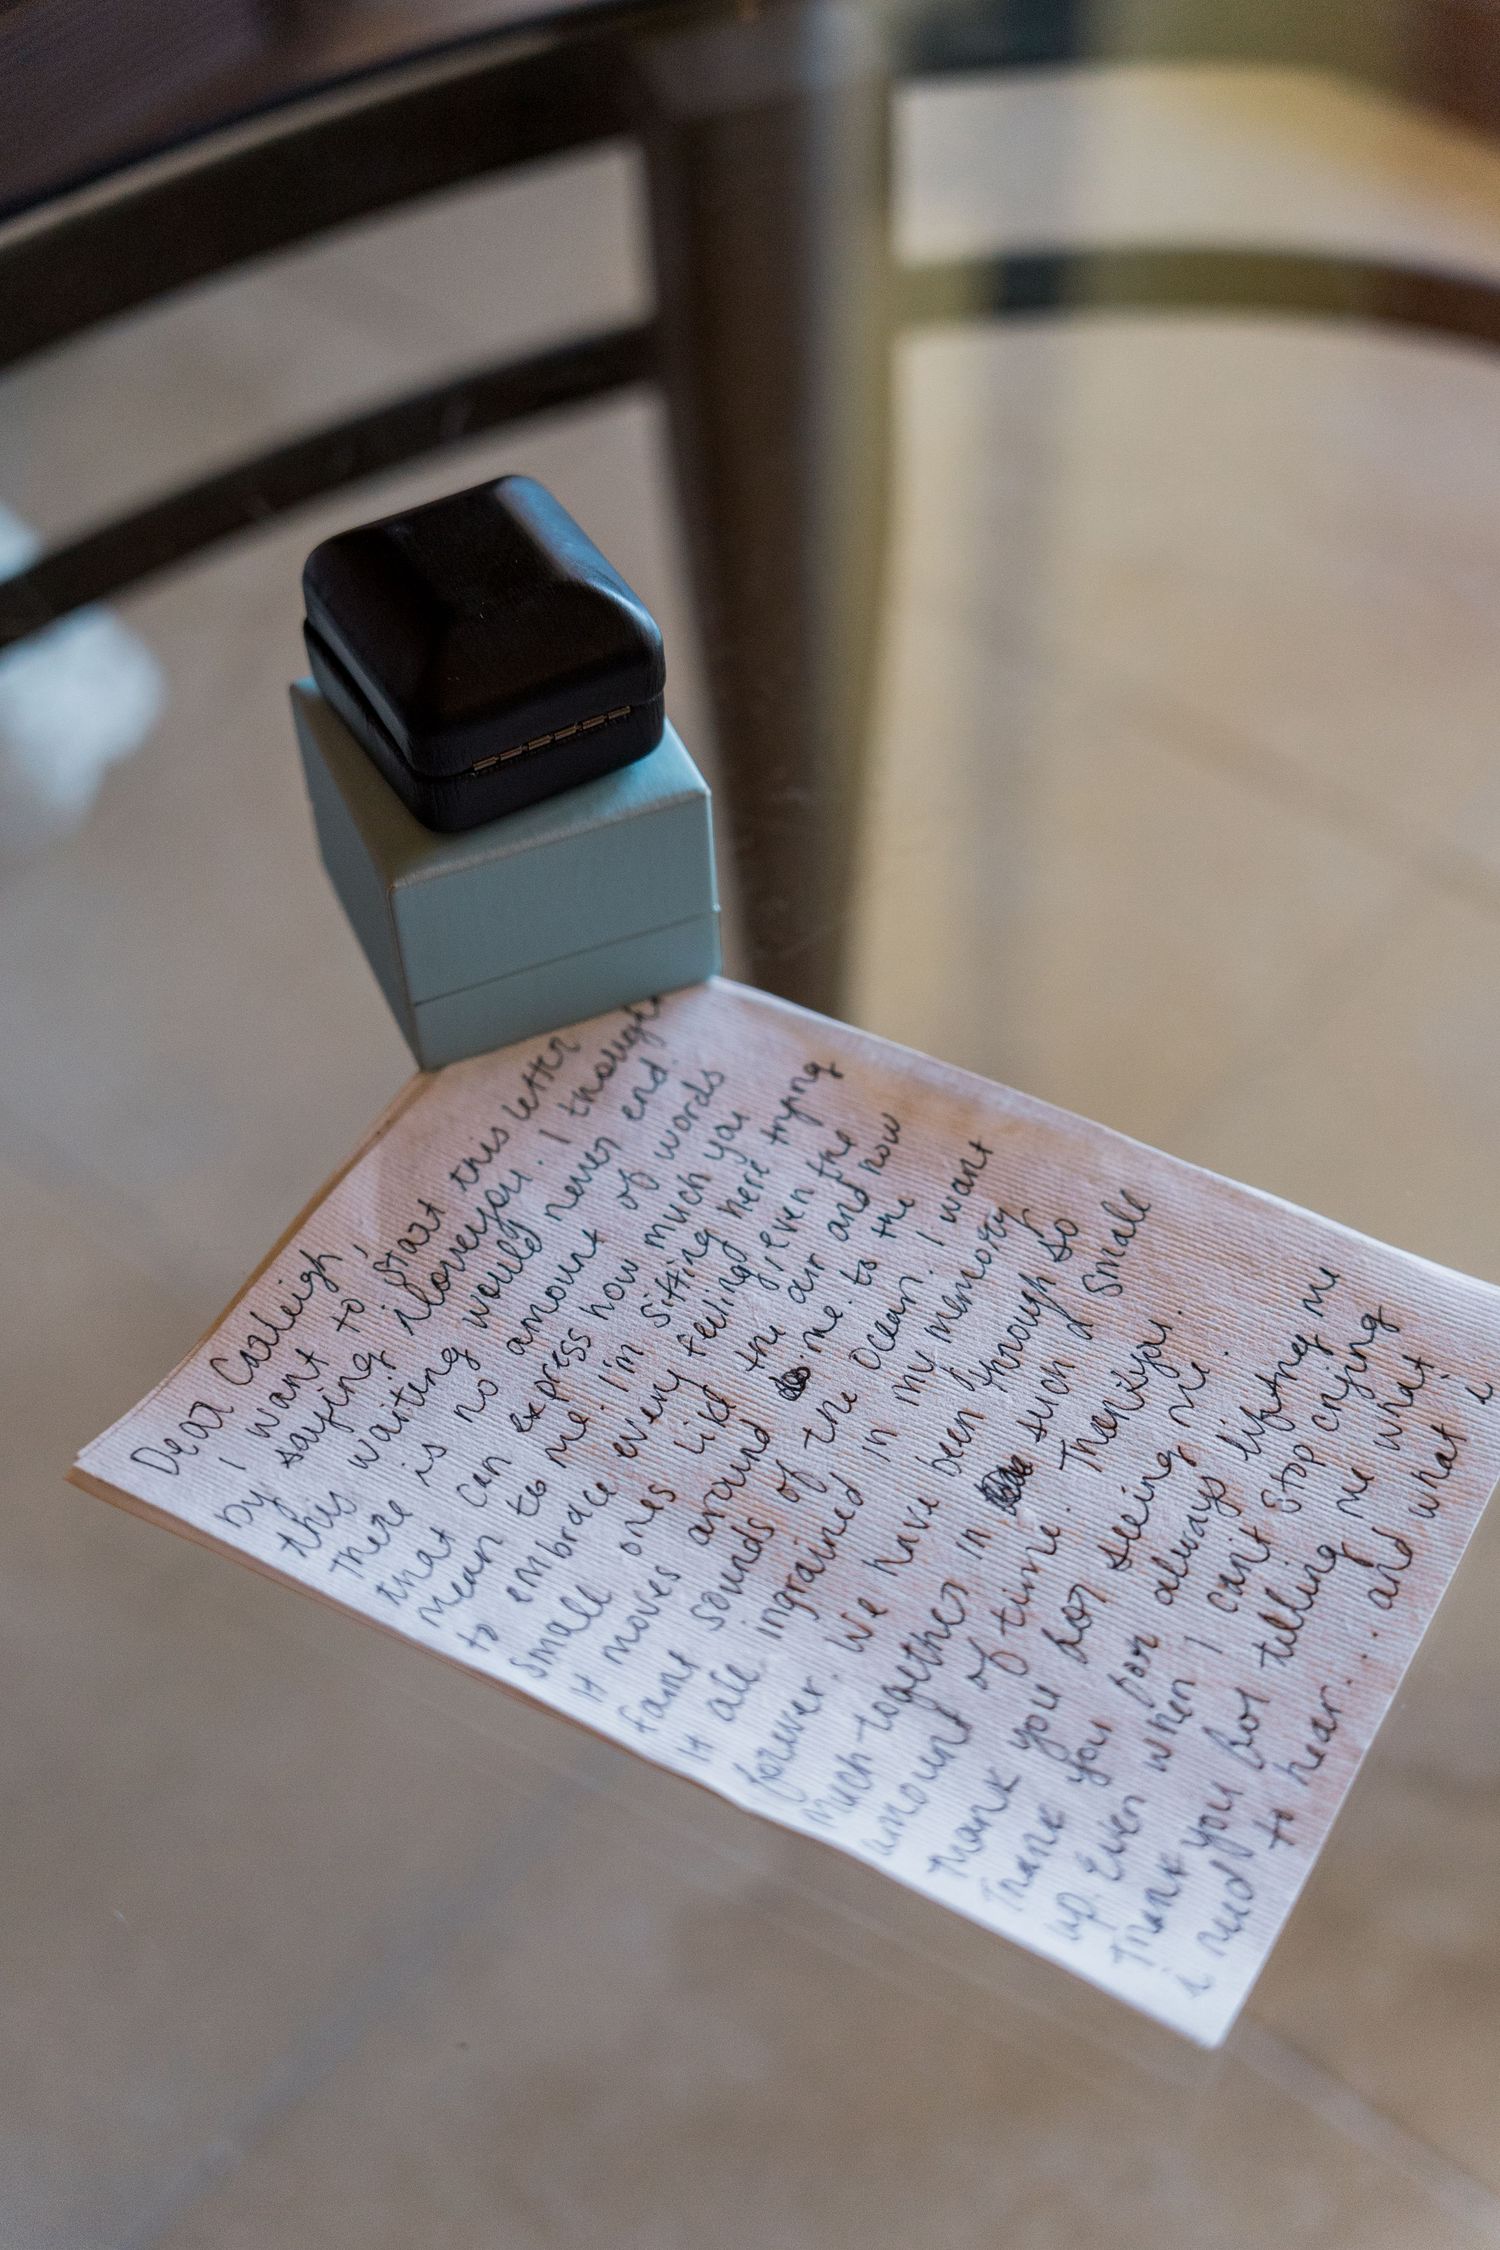 Dear Caaleigh,
I want to start this letter
by saying iloveyou. I thought
this waiting would never end.
There is no amount of words
that can express how much you
mean to me. I'm sitting here trying
to embrace every feeling, even the
small ones like the air and how
it moves around me. to the
faint sounds of the ocean. I want
it all ingrained in my memory
forever. We have been through so
much together in such a small
amount of time. Thankyou.
Thank you for seeing me.
Thank you for always lifting me
up. Even when I can't stop crying
Thank you for telling me what
i need to hear... and what i